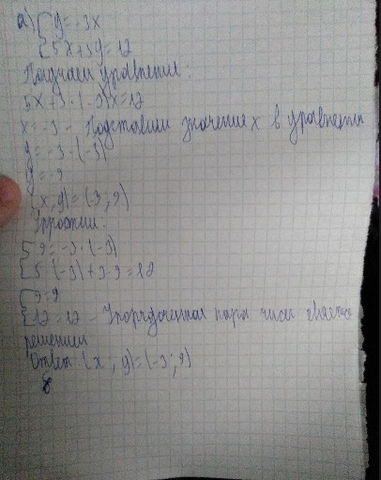 а) { y = -3x
{ 5x+3y=12
Получаем уравнение:
5x+3·(-3)x=12
x=-3 - Подставим значение x в уравнение
y=-3·(-3)
y=9
(x, y)=(-3; 9)
{ 9=-3·(-3)
{ 5·(-3)+3·9=12
{ 9=9
{ 12=12 - Упорядоченная пара чисел является
решением
Ответ (x; y)=(-3; 9)